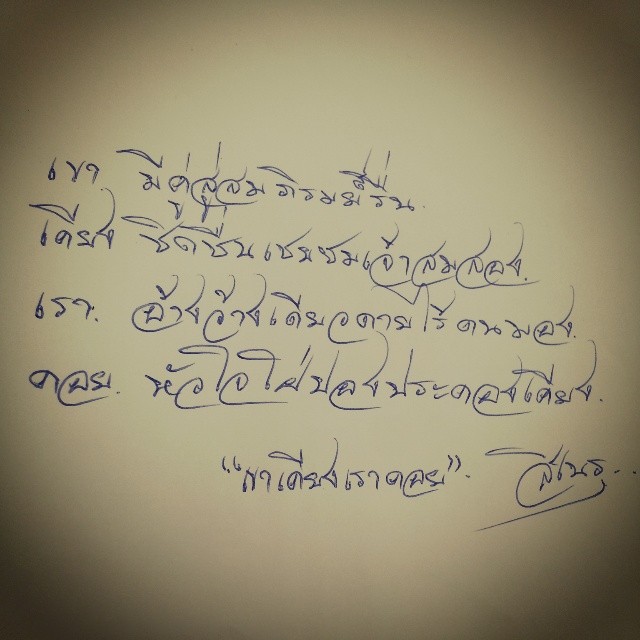 เขา. มีคู่สู่สมภิรมย์รื่น.
เคียง ชิดชื่นเชยชมเจ้าสมสอง.
เรา. อ้างว้างเดียวดายไร้คนมอง.
คอย. หัวใจใฝ่ปองประคองเคียง.
"เขาเคียงเราคอย".